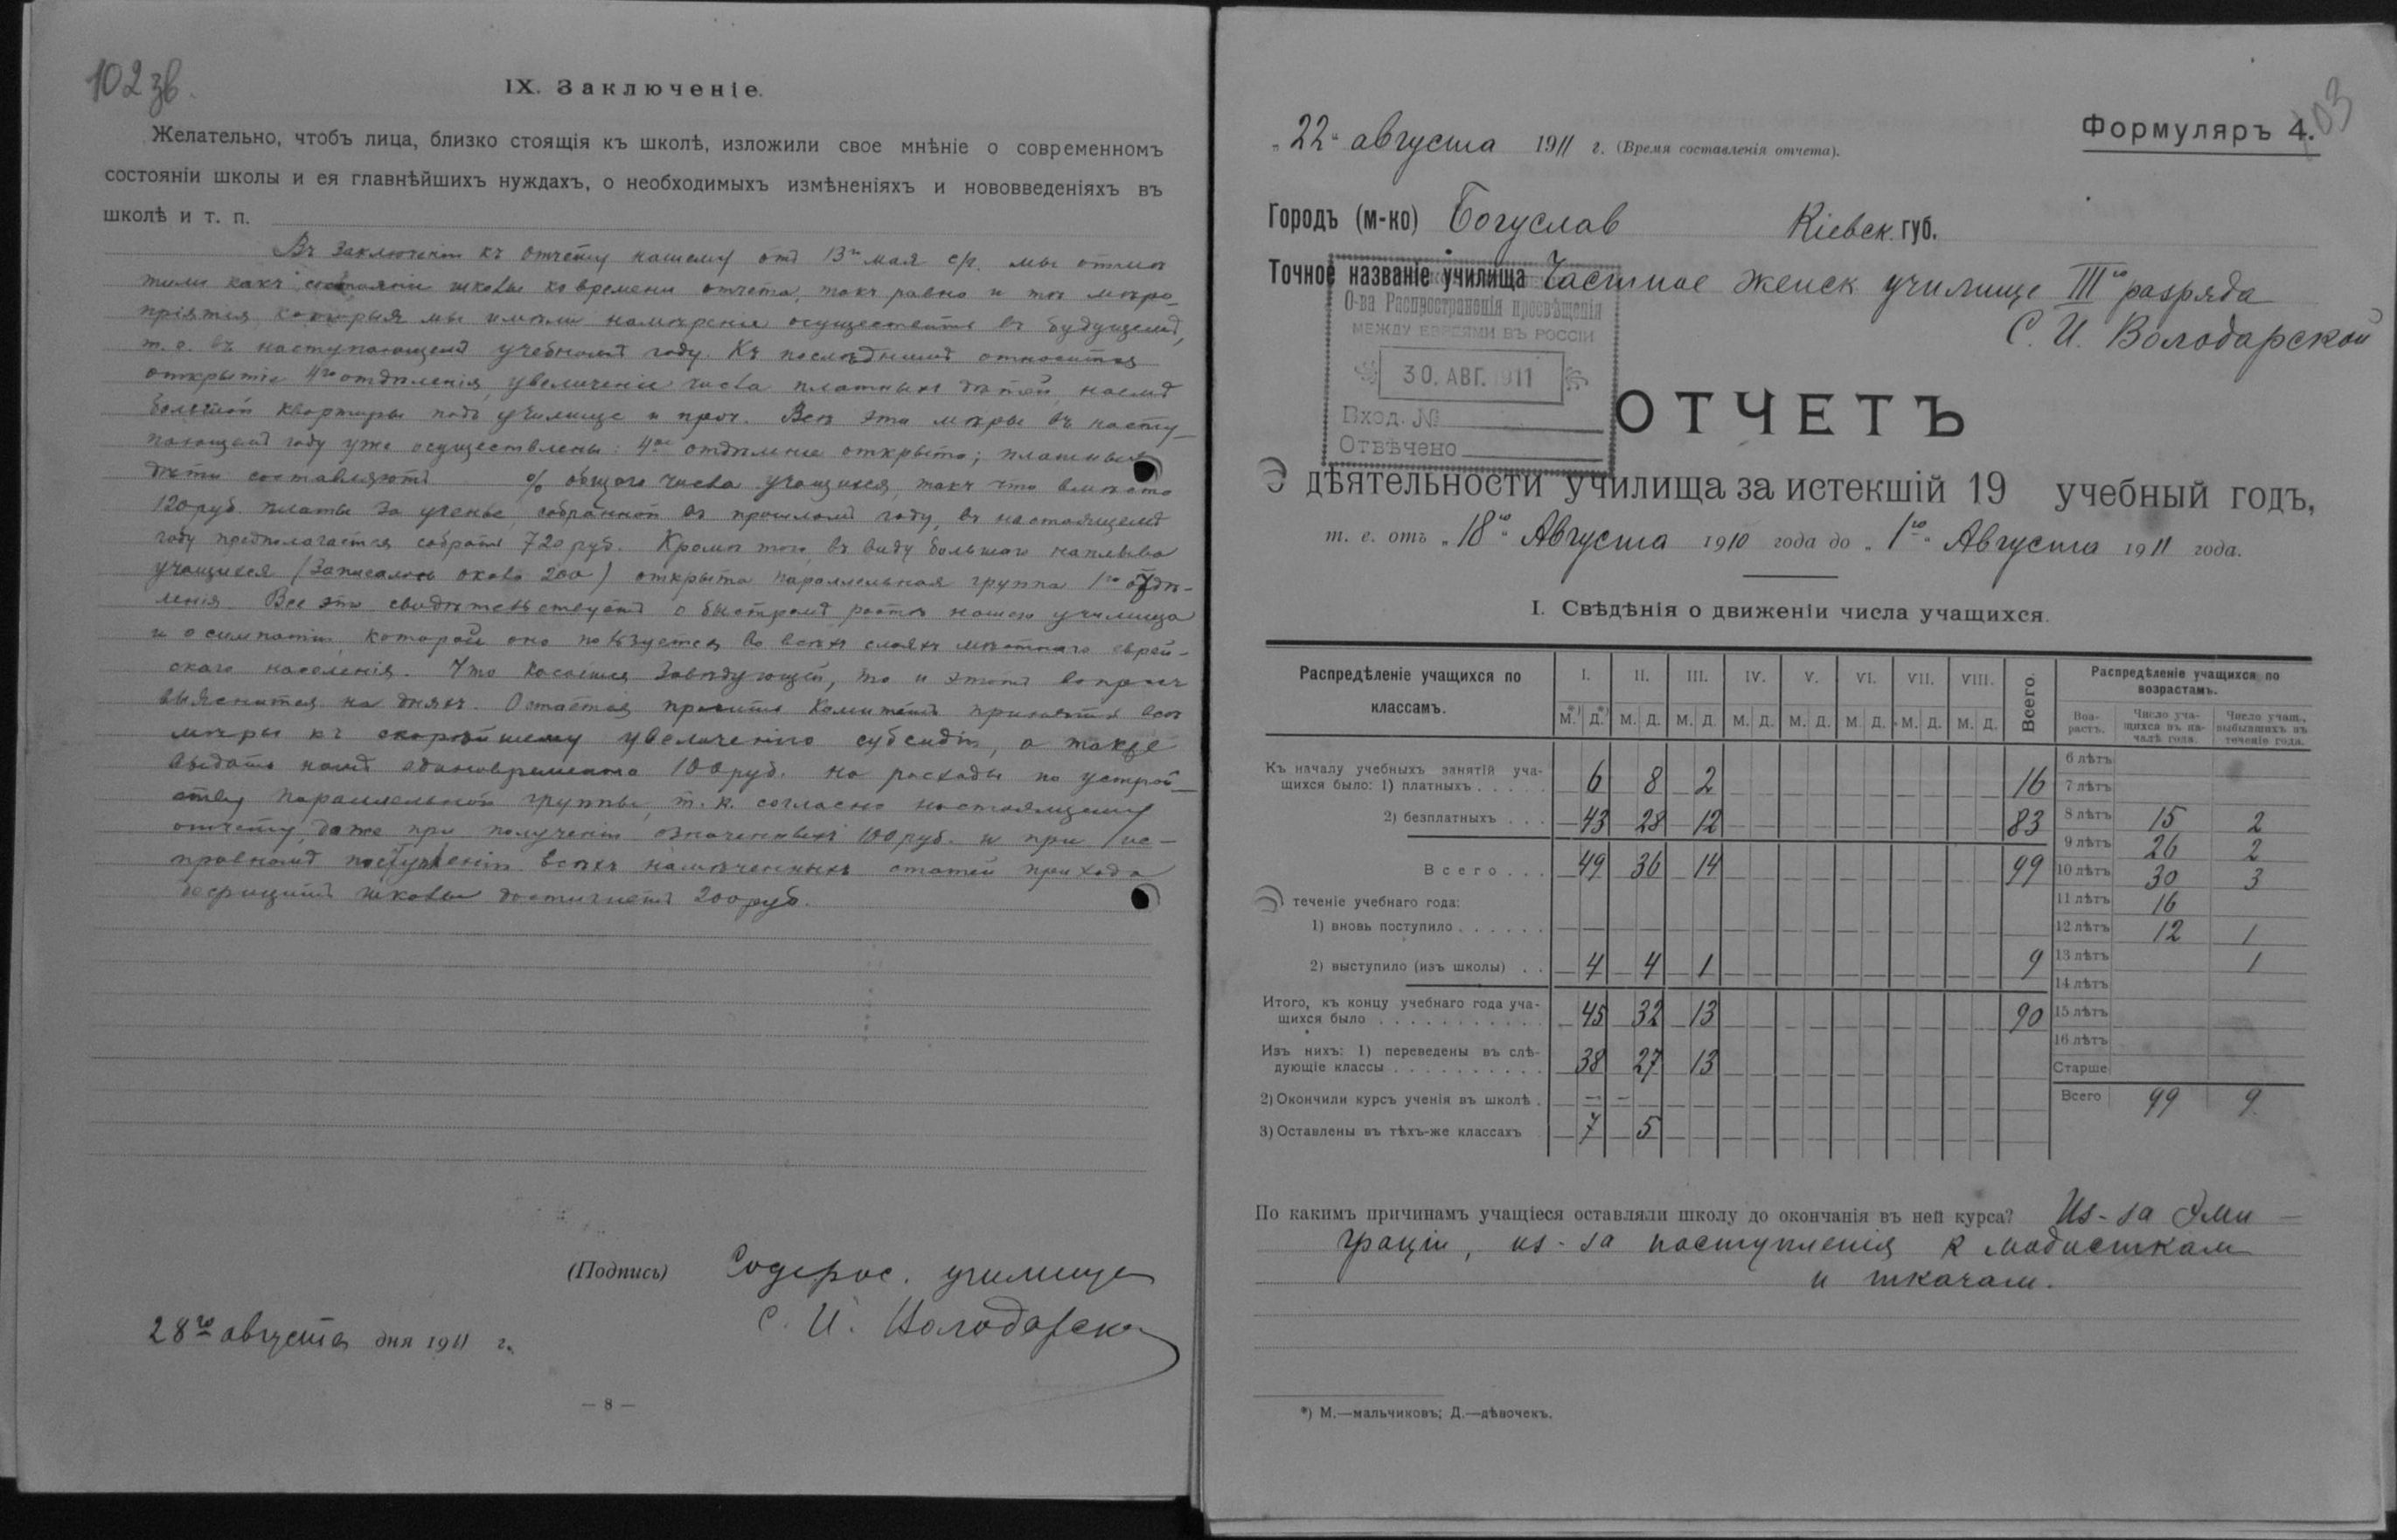 102 зв.
IX. Заключеніе.
Желательно, чтобъ лица, близко стоящія къ школѣ, изложили свое мнѣніе о современномъ
состояніи школы и ея главнѣйшихъ нуждахъ, о необходимыхъ измѣненіяхъ и нововведеніяхъ въ
школѣ и т. п.
Въ заключеніи къ отчету нашему отъ 13го мая с/г. мы отмѣ
тили какъ состояніе школы ко времени отчета, такъ равно и тѣ мѣро-
пріятія, которыя мы имѣли намѣреніе осуществить въ будущемъ,
т. е. въ наступающемъ учебномъ году. Къ послѣднимъ относится
открытіе 4го отдѣленія, увеличеніе числа платныхъ дѣтей, наемъ
большой квартиры подъ училище и проч. Всѣ эти мѣры въ насту-
пающемъ году уже осуществлены: 4ое отдѣленіе открыто; платныя
дѣти составляютъ % общаго числа учащихся, такъ что вмѣсто
120 руб. платы за ученье, собранной въ прошломъ году, въ настоящемъ
году предполагается собрать 720 руб. Кромѣ того, въ виду большого наплыва
учащихся (записалось около 200) открыта параллельная группа 1го отдѣ-
ленія. Все это свидѣтельствуетъ о быстромъ ростѣ нашего училища
и о симпатіи, которой оно пользуется во всѣхъ слояхъ мѣстнаго еврей-
скаго населенія. Что касается завѣдующей, то и этотъ вопросъ
выяснится на дняхъ. Остается просить Комитетъ принять всѣ
мѣры къ скорѣйшему увеличенію субсидіи, а также
выдать намъ единовременно 100 руб. на расходы по устрой-
ству параллельной группы, т. к. согласно настоящему
отчету, даже при полученіи означенныхъ 100 руб. и при ис-
правномъ поступленіи всѣхъ намѣченныхъ статей прихода
дефицитъ школы достигнетъ 200 руб.
(Подпись) Содерж. училища
С. И. Володарская
28го августа дня 1911 г.
— 8 —
103
Формуляръ 4.
„22" августа 1911 г. (Время составленія отчета).
Городъ (м-ко) Богуслав Кіевск. губ.
Точное названіе училища Частное женск училище IIIго разряда
С. И. Володарской
О-ва Распространенія просвѣщенія
МЕЖДУ ЕВРЕЯМИ ВЪ РОССІИ
30. АВГ. 1911
Вход. №
Отвѣчено
ОТЧЕТЪ
О дѣятельности училища за истекшій 19 учебный годъ,
т. е. отъ „18го" Августа 1910 года до „1го" Августа 1911 года.
I. Свѣдѣнія о движеніи числа учащихся.
Распредѣленіе учащихся по классамъ. I. II. III. IV. V. VI. VII. VIII. Всего.
М.*) Д.*) М. Д. М. Д. М. Д. М. Д. М. Д. М. Д. М. Д.
Къ началу учебныхъ занятій уча-
щихся было: 1) платныхъ . . . . . — 6 — 8 — 2 — — — — — — — — — — 16
2) безплатныхъ . . . — 43 — 28 — 12 — — — — — — — — — — 83
Всего . . . — 49 — 36 — 14 — — — — — — — — — — 99
Въ теченіе учебнаго года:
1) вновь поступило . . . . . . — — — — — — — — — — — — — — — — —
2) выступило (изъ школы) . . — 4 — 4 — 1 — — — — — — — — — — 9
Итого, къ концу учебнаго года уча-
щихся было . . . . . . . . . . . — 45 — 32 — 13 — — — — — — — — — — 90
Изъ нихъ: 1) переведены въ слѣ-
дующіе классы . . . . . . . . . . — 38 — 27 — 13 — — — — — — — — — — —
2) Окончили курсъ ученія въ школѣ . — — — — — — — — — — — — — — — — —
3) Оставлены въ тѣхъ-же классахъ — 7 — 5 — — — — — — — — — — — — —
Распредѣленіе учащихся по
возрастамъ.
Воз-
растъ. Число уча-
щихся въ на-
чалѣ года. Число учащ.,
выбывшихъ въ
теченіе года.
6 лѣтъ
7 лѣтъ
8 лѣтъ 15 2
9 лѣтъ 26 2
10 лѣтъ 30 3
11 лѣтъ 16
12 лѣтъ 12 1
13 лѣтъ 1
14 лѣтъ
15 лѣтъ
16 лѣтъ
Старше
Всего 99 9
По какимъ причинамъ учащіеся оставляли школу до окончанія въ ней курса? Из-за эми-
граціи, из-за поступленія к модисткам
и ткачам.
*) М.—мальчиковъ; Д.—дѣвочекъ.